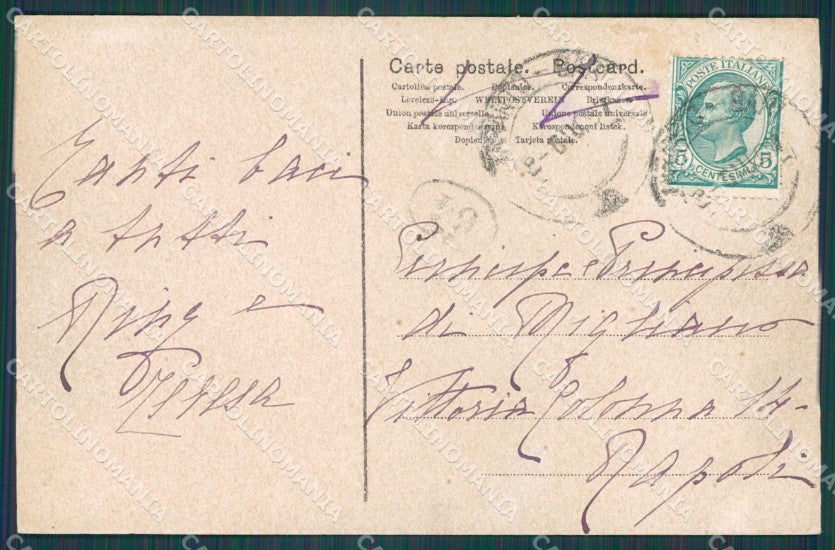 Carte postale. Postcard.
Cartolina postale. Dopisnice. Correspondenzkarte.
Levelező-lap. WELTPOSTVEREIN Briefkaart.
Union postale universelle. Unione postale universale
Karta korespondencyjna. Korespondenční lístek.
Dopisnica. Tarjeta postale.
POSTE ITALIANE
5 5
CENTESIMI
Tanti baci
a tutti
e
Teresa
Principe e Principessa
di Migliano
Vittoria Colonna 14-
Napoli
CARTOLINOMANIA